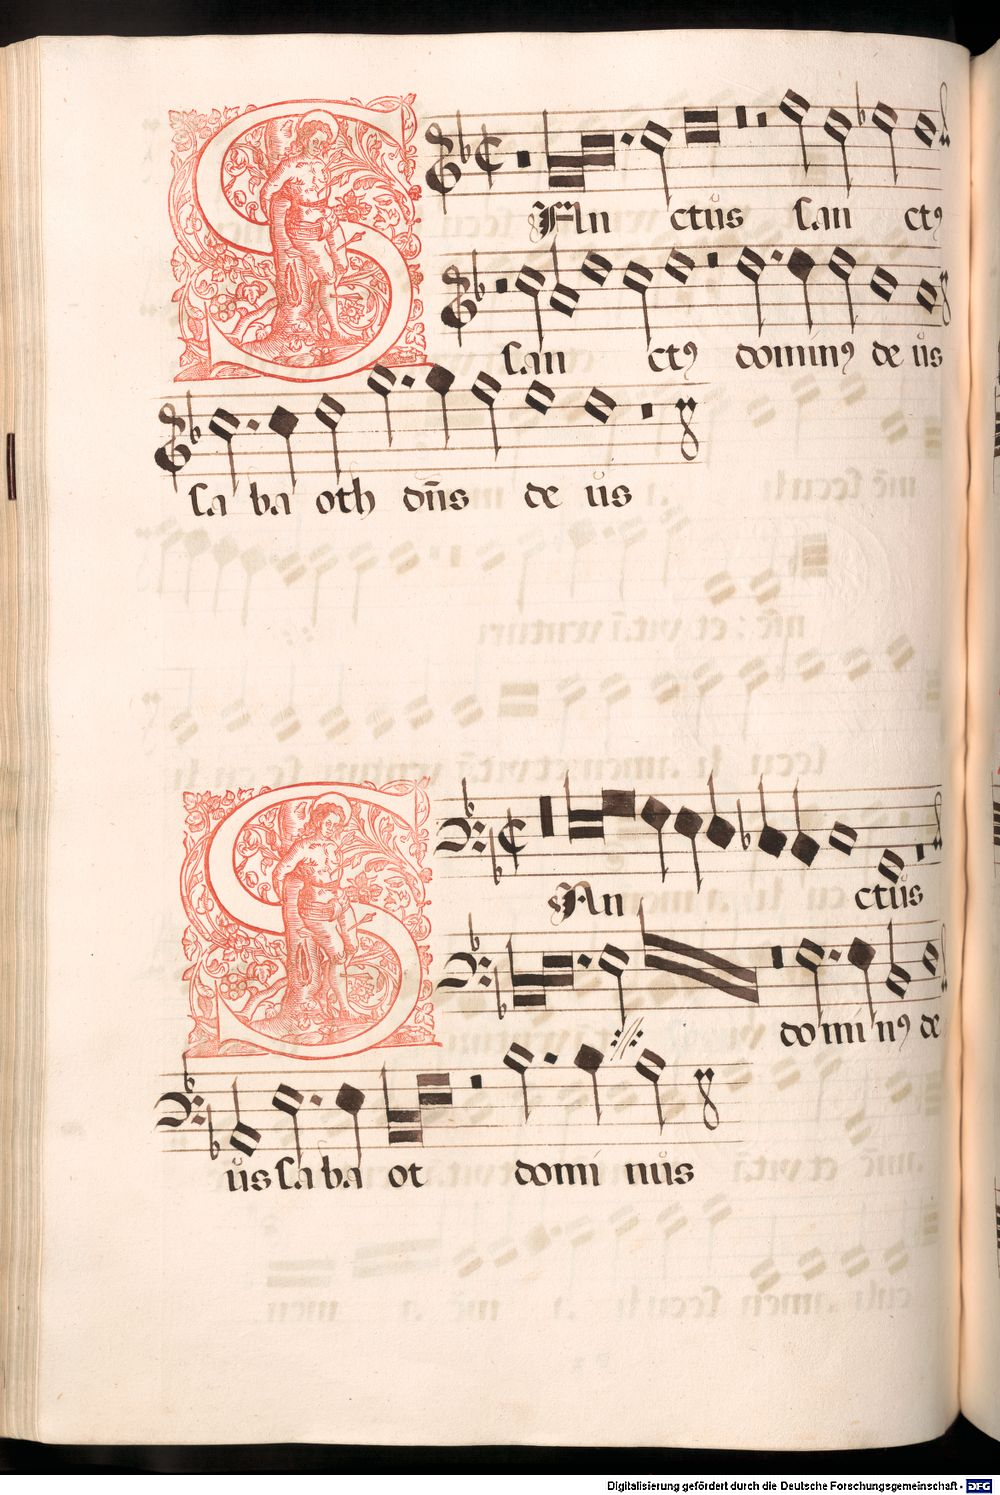 SAnctus sanctꝰ
sanctꝰ dominꝰ deus
sabaoth dn̄s deus
SAnctus
dominꝰ de
us sabaot dominus
Digitalisierung gefördert durch die Deutsche Forschungsgemeinschaft - DFG